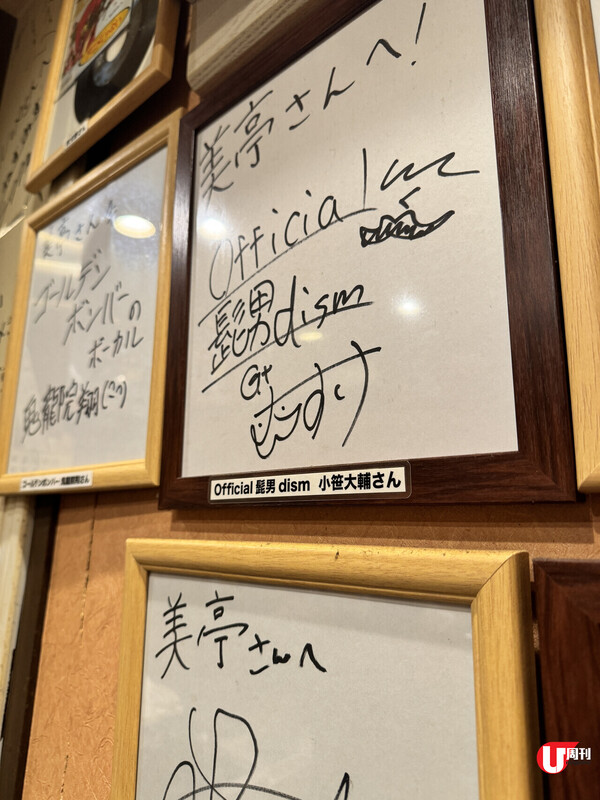 美亭さんへ!
Official
髭男dism
Gt
Official髭男dism 小笹大輔さん
ゴールデン
ボンバーの
ボーカル
鬼龍院翔
ゴールデンボンバー 鬼龍院翔さん
美亭さんへ
U周刊